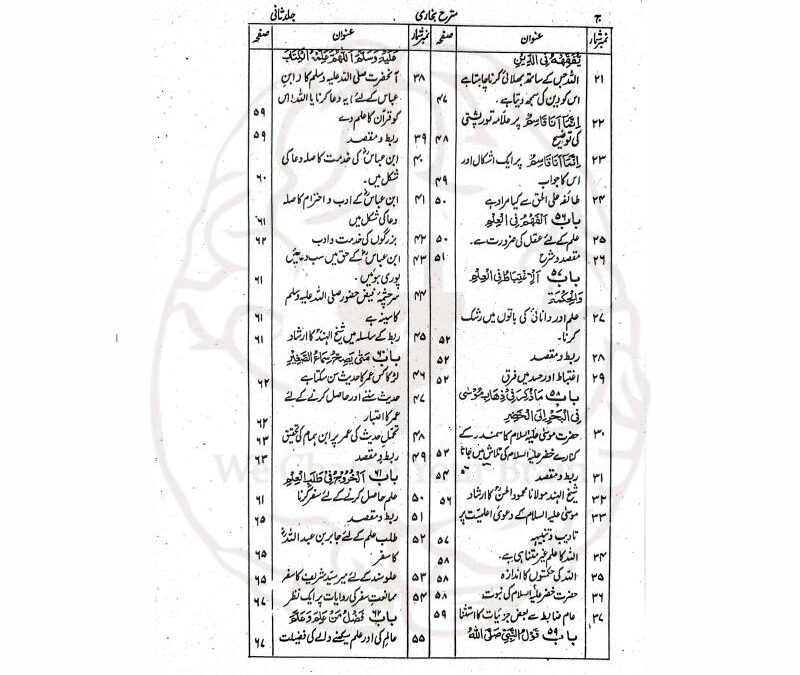 ج
شرح بخاری
جلد ثانی
نمبر شمار عنوان صفحہ
یُفَقِّهْهُ فِی الدِّیْنِ
۲۱ اللہ جس کے ساتھ بھلائی کرنا چاہتا ہے
اس کو دین کی سمجھ دیتا ہے۔ ۴۷
۲۲ اِنَّمَا اَنَا قَاسِمٌ پر علامہ تورپشتی
کی توضیح ۴۸
۲۳ اِنَّمَا اَنَا قَاسِمٌ پر ایک اشکال اور
اس کا جواب ۴۹
۲۴ طائفہ علی الحق سے کیا مراد ہے ۵۰
باب ۵۶ اَلْفَهْمُ فِی الْعِلْمِ
۲۵ علم کے لئے عقل کی ضرورت ہے۔ ۵۰
۲۶ مقصد و شرح ۵۱
باب ۵۷ اَلْاِغْتِبَاطُ فِی الْعِلْمِ
وَالْحِكْمَةِ
۲۷ علم اور دانائی کی باتوں میں رشک
کرنا۔ ۵۲
۲۸ ربط و مقصد ۵۲
۲۹ اغتباط اور حسد میں فرق ۵۲
باب ۵۸ مَا ذُكِرَ فِی ذَهَابِ مُوْسٰی
فِی الْبَحْرِ اِلَی الْخَضِرِ
۳۰ حضرت موسیٰ علیہ السلام کا سمندر کے
کنارے خضر علیہ السلام کی تلاش میں جانا ۵۳
۳۱ ربط و مقصد ۵۴
۳۲ شیخ الہند مولانا محمود الحسنؒ کا ارشاد ۵۶
۳۳ موسیٰ علیہ السلام کے دعویٰ اعلمیت پر
تادیب و تنبیہ ۵۷
۳۴ اللہ کا علم غیر متناہی ہے۔ ۵۸
۳۵ اللہ کی حکمتوں کا اندازہ ۵۸
۳۶ حضرت خضر علیہ السلام کی نبوت ۵۸
۳۷ عام ضابطہ سے بعض جزئیات کا استثنا ۵۹
باب ۵۹ قَوْلُ النَّبِیِّ صَلَّی اللّٰهُ
نمبر شمار عنوان صفحہ
عَلَیْهِ وَسَلَّمَ اَللّٰهُمَّ عَلِّمْهُ الْكِتَابَ
۳۸ آنحضرت صلی اللہ علیہ وسلم کا (ابن
عباس کے لئے) یہ دعا کرنا یا اللہ! اس
کو قرآن کا علم دے ۵۹
۳۹ ربط و مقصد ۵۹
۴۰ ابن عباسؓ کی خدمت کا صلہ دعا کی
شکل میں۔ ۶۰
۴۱ ابن عباسؓ کے ادب و احترام کا صلہ
دعا کی شکل میں ۶۱
۴۲ بزرگوں کی خدمت و ادب ۶۲
۴۳ ابن عباسؓ کے حق میں سب دعائیں
پوری ہوئیں۔ ۶۱
۴۴ سرچشمۂ فیض حضور صلی اللہ علیہ وسلم
کا سینہ ہے ۶۱
۴۵ ربط کے سلسلہ میں شیخ الہندؒ کا ارشاد ۶۱
باب ۶۰ مَتٰی یَصِحُّ سِمَاعُ الصَّغِیْرِ
۴۶ لڑکا کس عمر کا حدیث سن سکتا ہے ۶۲
۴۷ حدیث سننے اور حاصل کرنے کے لئے
عمر کا اعتبار ۶۲
۴۸ تحمل حدیث کی عمر پر ابن ہمام کی تحقیق ۶۳
۴۹ ربط و مقصد ۶۳
باب ۶۱ اَلْخُرُوْجُ فِی طَلَبِ الْعِلْمِ
۵۰ علم حاصل کرنے کے لئے سفر کرنا ۶۱
۵۱ ربط و مقصد ۶۵
۵۲ طلب علم کے لئے جابر بن عبد اللہؓ
کا سفر ۶۵
۵۳ علو سند کے لئے میر سید شریف کا سفر ۶۵
۵۴ ممانعت سفر کی روایات پر ایک نظر ۶۷
باب ۶۲ فَضْلُ مَنْ عَلِمَ وَعَلَّمَ
۵۵ عالم کی اور علم سیکھنے والے کی فضیلت ۶۷